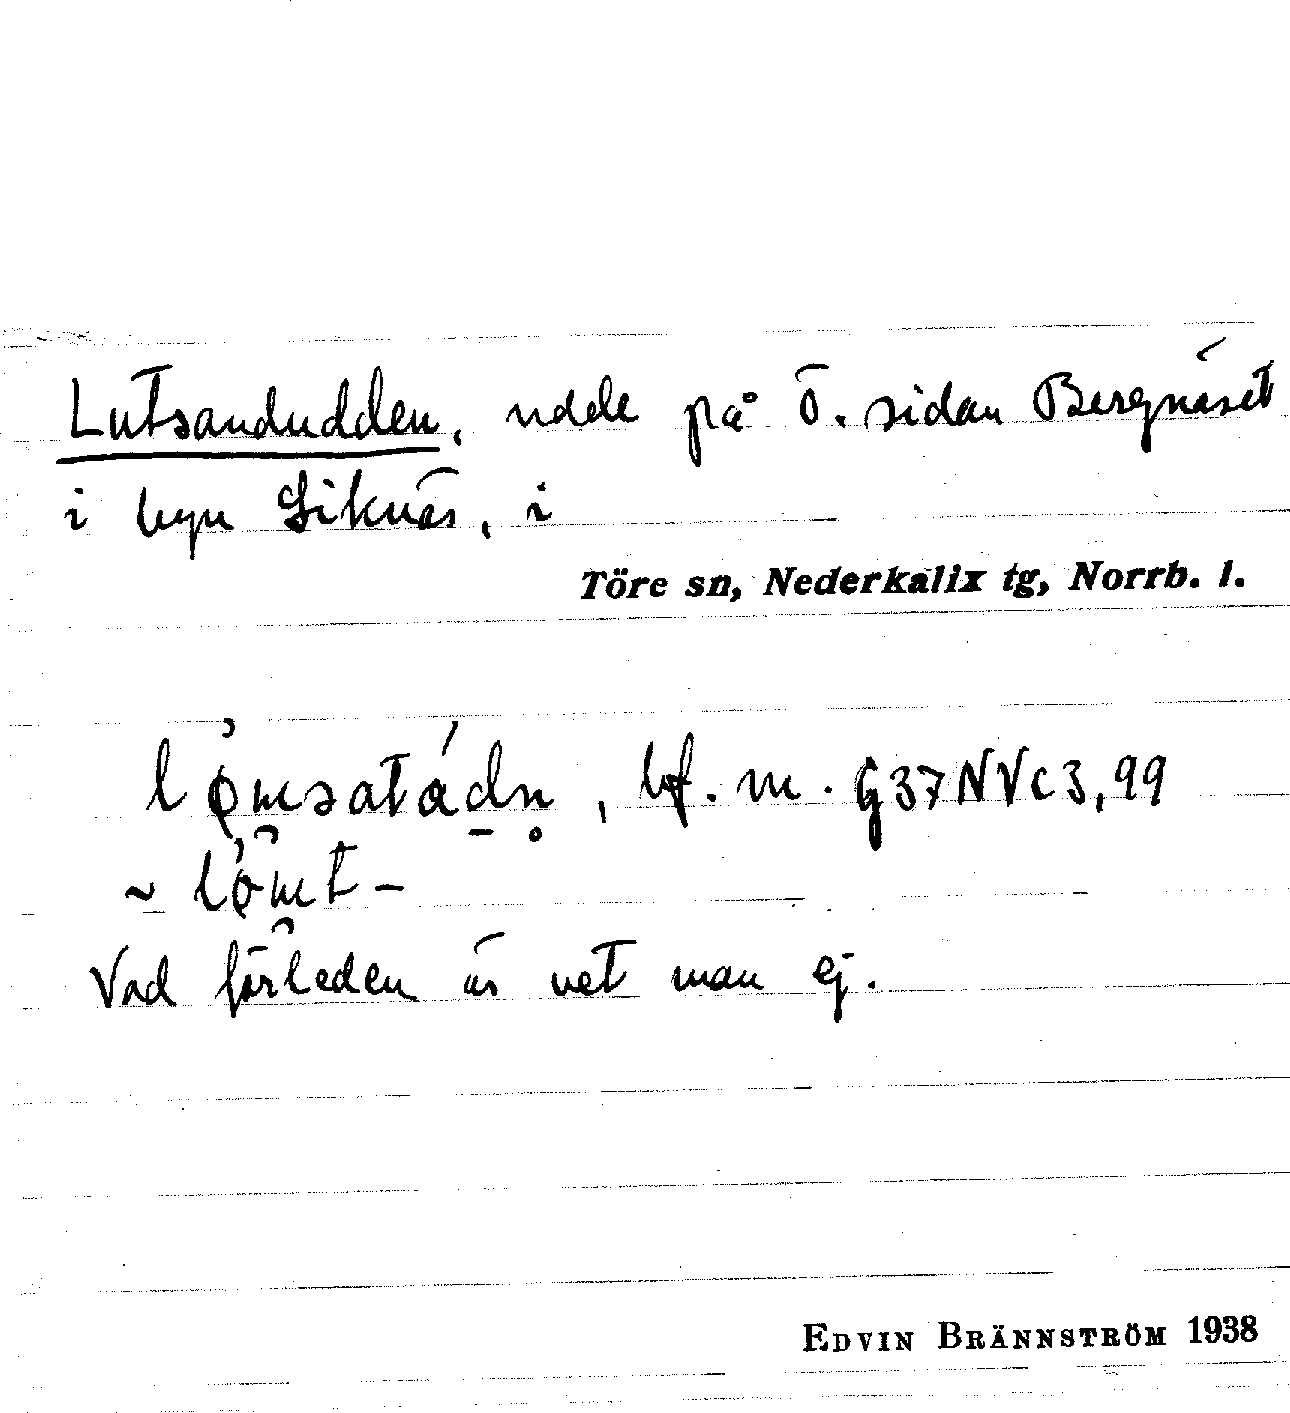 Lutsandudden, udde på ö. sidan Bergnäset
i byn Siknäs, i
Töre sn, Nederkalix tg, Norrb. l.
bf. m. G37NVc3,99
Vad förleden är vet man ej.
EDVIN BRÄNNSTRÖM 1938